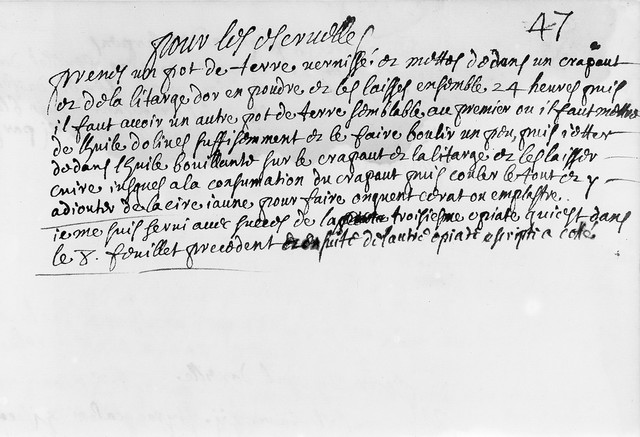 47
pour les escruelles
prenes un pot de terre vernissé et mettes dedans un crapaut
et de la litarge dor en poudre et les laisses ensemble 24 heures puis
il faut avoir un autre pot de terre semblable au premier ou il faut mettre
de lhuile dolives suffisemment et le faire boulir un peu, puis ietter
dedans lhuile bouillante sur le crapaut et la litarge et les laisser
cuire iusques a la consumation du crapaut puis couler le tout et y
adiouter de la cire iaune pour faire onguent cerat ou emplastre.
ie me suis servi avec succes de la troisiesme opiate qui est dans
le 8. feuillet precedent et ensuite de lautre opiate a coté